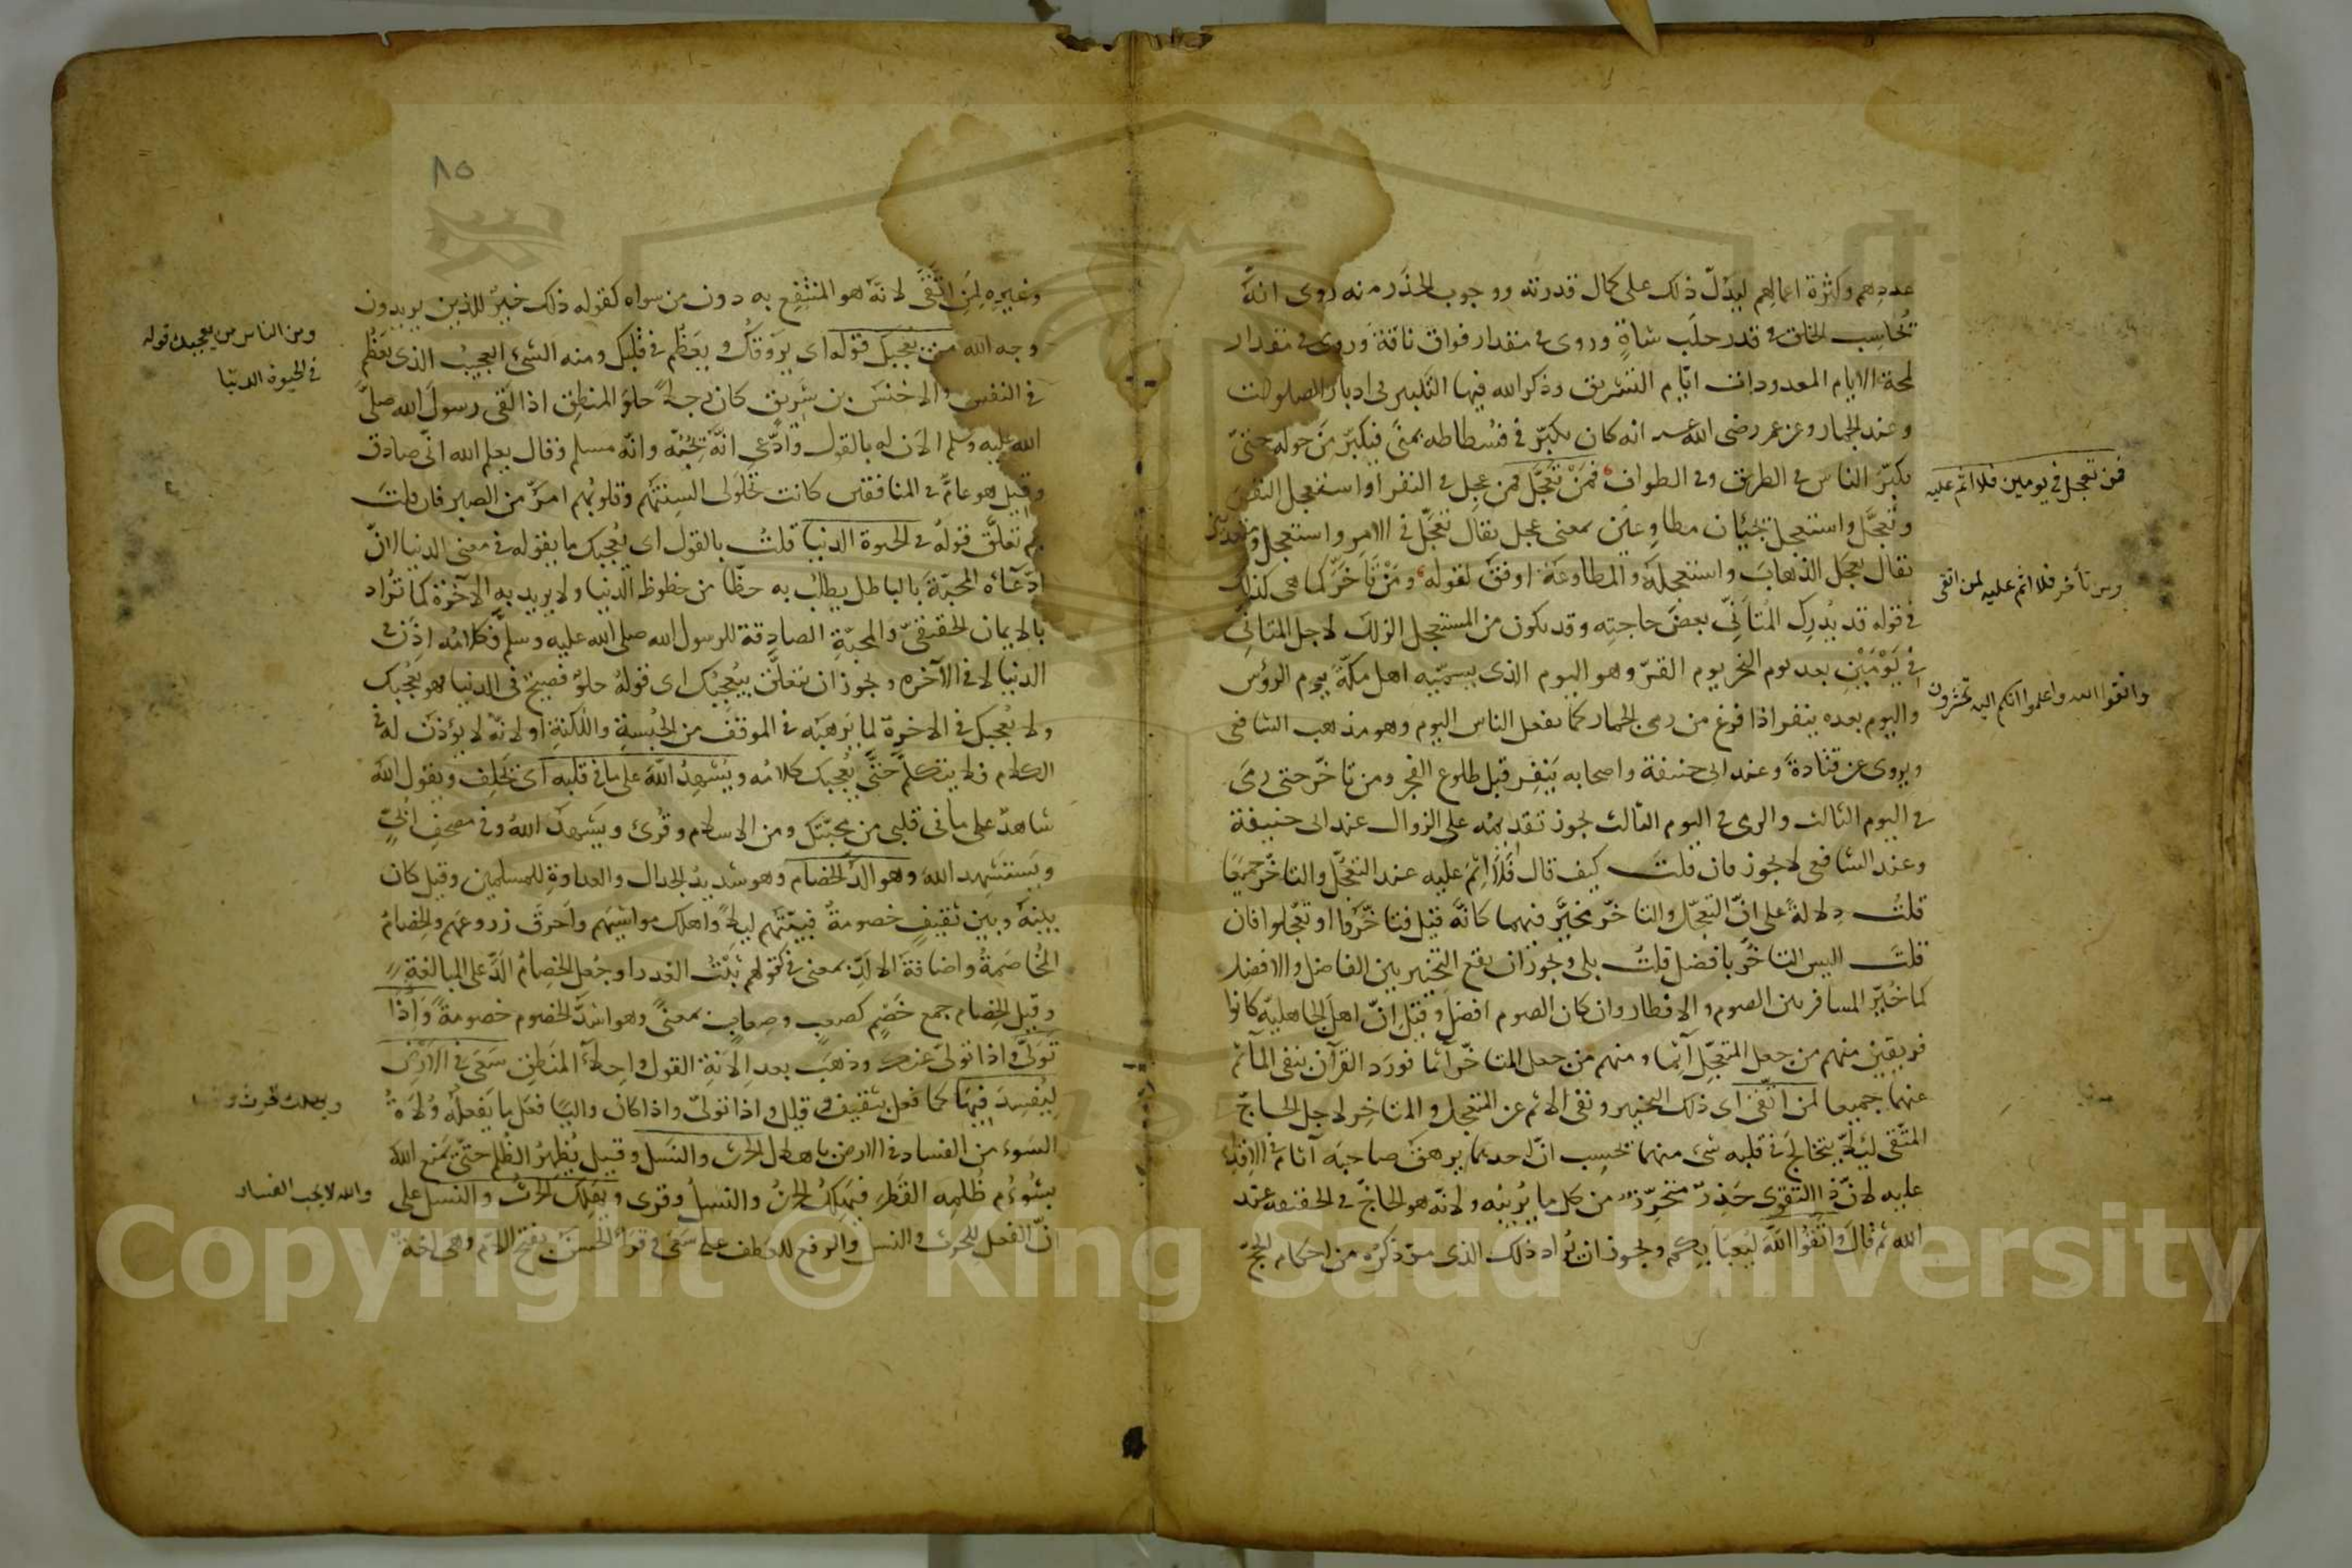 عددهم وكثرة اعمالهم ليدل ذلك على كمال قدرته ووجوب الحذر منه روى انه
يحاسب الخلق فى قدر حلب شاة وروى فى مقدار فواق ناقة وروى فى مقدار
لمحة الايام المعدودات ايام التشريق وذكر الله فيها التكبير فى ادبار الصلوات
وعند الجمار وعن عمر رضى الله عنه انه كان يكبر فى فسطاطه بمنى فيكبر من حوله حتى
يكبر الناس فى الطريق وفى الطواف فَمَنْ تَعَجَّلَ فمن عجل فى النفر او استعجل النفر
فمن تعجل فى يومين فلا اثم عليه
وتعجل واستعجل يجيئان مطاوعين بمعنى عجل يقال تعجل فى الامر واستعجل ومتعديين
يقال تعجل الذهاب واستعجله والمطاوعة اوفق لقوله ومن تأخر كما هى كذلك
ومن تأخر فلا اثم عليه لمن اتقى
فى قوله قد يدرك المتأنى بعض حاجته وقد يكون من المستعجل الزلل لاجل المتأنى
فى يَوْمَيْنِ بعد يوم النحر يوم القر وهو اليوم الذى يسميه اهل مكة يوم الرؤس
واتقوا الله واعلموا انكم اليه تحشرون
واليوم بعده ينفر اذا فرغ من رمى الجمار كما يفعل الناس اليوم وهو مذهب الشافعى
ويروى عن قتادة وعند ابى حنيفة واصحابه ينفر قبل طلوع الفجر ومن تأخر حتى رمى
فى اليوم الثالث والرمى فى اليوم الثالث يجوز تقديمه على الزوال عند ابى حنيفة
وعند الشافعى لا يجوز فان قلت كيف قال فَلَا اِثْمَ عليه عند التعجل والتأخر جميعا
قلت دلالة على ان التعجل والتأخر مخير فيهما كانه قيل فتأخروا او تعجلوا فان
قلت اليس التأخر بافضل قلت بلى ويجوز ان يقع التخيير بين الفاضل والافضل
كما خير المسافر بين الصوم والافطار وان كان الصوم افضل وقيل ان اهل الجاهلية كانوا
فريقين منهم من جعل المتعجل آثما ومنهم من جعل المتأخر آثما فورد القرآن بنفى المأثم
عنهما جميعا لمن اتقى اى ذلك التخيير ونفى الاثم عن المتعجل والمتأخر لاجل الحاج
المتقى لئلا يتخالج فى قلبه شىء منهما فيحسب ان احدهما يرهق صاحبه آثام فى الاقدام
عليه لان ذا التقوى حذر متحرز من كل ما يريبه ولانه هو الحاج فى الحقيقة عند
الله ثم قال واتقوا الله ليعبأ بكم ويجوز ان يراد ذلك الذى مر ذكره من احكام الحج
٨٥
وغيره لِمَنِ اتَّقَى لانه هو المنتفع به دون من سواه كقوله ذلك خير للذين يريدون
وجه الله من يعجبك قوله اى يروقك ويعظم فى قلبك ومنه الشىء العجيب الذى يعظم
ومن الناس من يعجبك قوله
فى الحيوة الدنيا
فى النفس والاخنس بن شريق كان رجلا حلو المنطق اذا لقى رسول الله صلى
الله عليه وسلم الان له بالقول وادعى انه يحبه وانه مسلم وقال يعلم الله انى صادق
وقيل هو عام فى المنافقين كانت تحلولى السنتهم وقلوبهم امر من الصبر فان قلت
بم تعلق قوله فى الحيوة الدنيا قلت بالقول اى يعجبك ما يقوله فى معنى الدنيا لان
ادعاءه المحبة بالباطل يطلب به حظا من حظوظ الدنيا ولا يريد به الآخرة كما تراد
بالايمان الحقيقى والمحبة الصادقة للرسول صلى الله عليه وسلم فكلامه اذن فى
الدنيا لا فى الآخرة ويجوز ان يتعلق بيعجبك اى قوله حلو فصيح فى الدنيا فهو يعجبك
ولا يعجبك فى الاخرة لما يرهقه فى الموقف من الحبسة واللكنة او لانه لا يؤذن له فى
الكلام فلا يتكلم حتى يعجبك كلامه ويُشهد الله على ما فى قلبه اى يحلف ويقول الله
شاهد على ما فى قلبى من محبتك ومن الاسلام وقرئ ويشهد الله وفى مصحف ابى
ويستشهد الله وهو الد الخصام وهو شديد الجدال والعداوة للمسلمين وقيل كان
بينه وبين ثقيف خصومة فبيتهم ليلا واهلك مواشيهم واحرق زروعهم والخصام
المخاصمة واضافة الالد بمعنى فى كقولهم ثبت الغدر او جعل الخصام الد على المبالغة
وقيل الخصام جمع خصم كصعب وصعاب بمعنى وهو اشد الخصوم خصومة وَاِذَا
تَوَلَّى واذا تولى عنك وذهب بعد الانة القول واحلاء المنطق سَعَى فى الارض
لِيُفْسِدَ فِيهَا كما فعل بثقيف وقيل واذا تولى واذا كان واليا فعل ما يفعله ولاة
ويهلك الحرث
السوء من الفساد فى الارض باهلاك الحرث والنسل وقيل يظهر الظلم حتى يمنع الله
بشؤم ظلمه القطر فيهلك الحرث والنسل وقرى ويهلك الحرث والنسل على
والله لا يحب الفساد
ان الفعل للحرث والنسل والرفع للعطف على سعى وقرأ الحسن بفتح اللام وهى لغة
Copyright © King Saud University